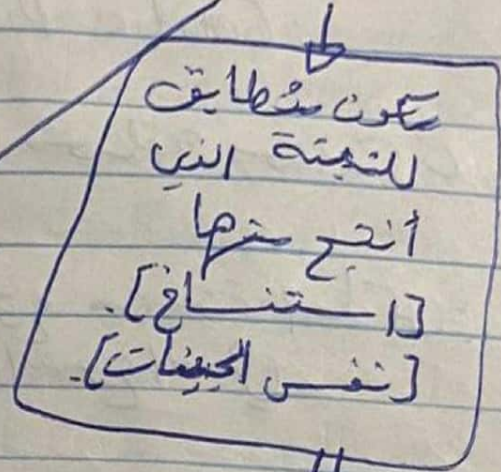 يكون متطابق
للنبتة التي
أنتج منها
[استنساخ].
[نفس الجينات].